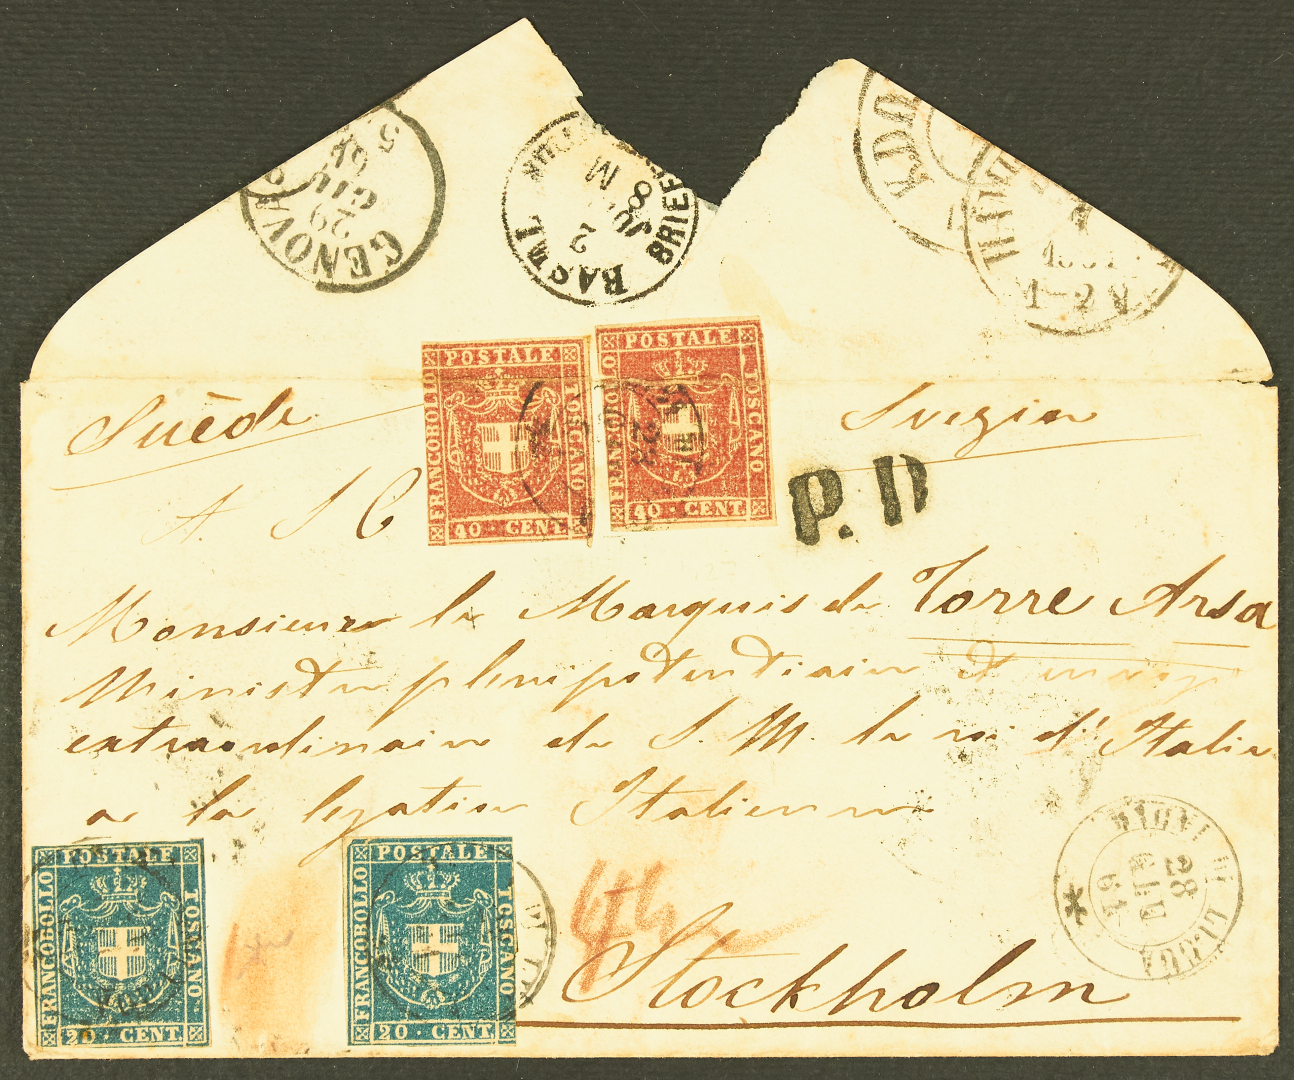 GENOVA
29
GIU
BRIEF
JU
2
8 M
KDR
1-2
POSTALE
FRANCOBOLLO
TOSCANO
40 · CENT.
POSTALE
FRANCOBOLLO
TOSCANO
40 · CENT.
Suède
Svezia
P.D
A. S C
Monsieur le Marquis de Torre Arsa
Ministre plenipotentiaire et envoyé
extraordinaire de S. M. le roi d'Italie
a la legation Italienne
Stockholm
POSTALE
FRANCOBOLLO
TOSCANO
20 · CENT.
POSTALE
FRANCOBOLLO
TOSCANO
20 · CENT.
BAGNI DI LUCCA
28
GIU
61